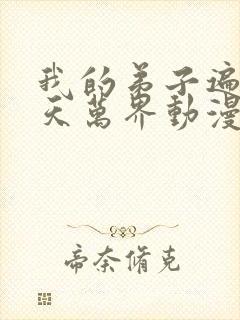 我的弟子遍
天萬界動漫
帝奈脩克